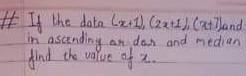 # If the data (x+1), (2x+1), (x+7) and
in ascending an dar and median
find the value of x.